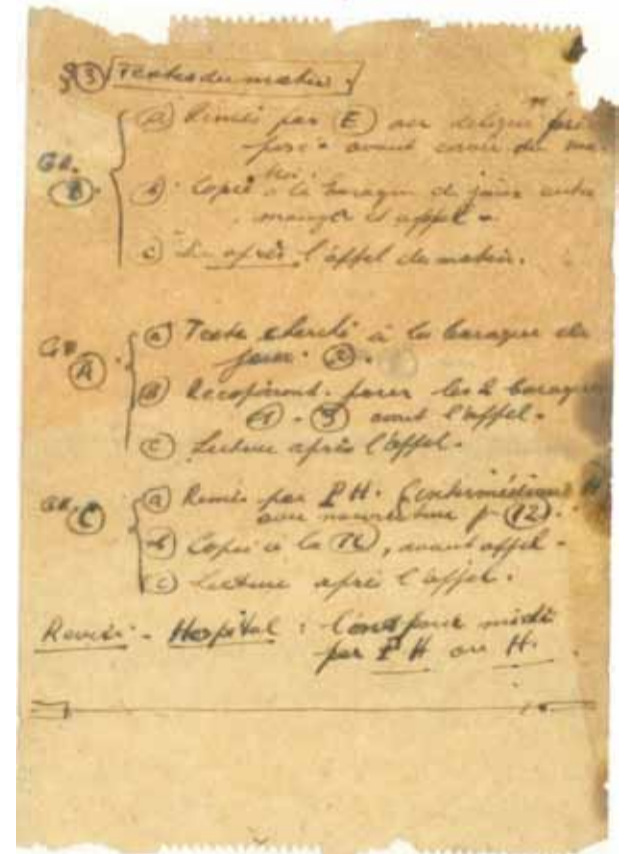 § ③ Textes du matin.
GR. B.
a) Remis par E au délégué
avant
b) Copié à la baraque de jour entre
manger et appel -
c) Lu après l'appel du matin.
GR. A.
a) Texte cherché à la baraque de
jour. ②.
b) pour les 2 baraques
① - ③ avant l'appel -
c) Lecture après l'appel -
GR. C
a) Remis par P H.
avec nourriture p. 12.
b) Copié à la 12, avant appel -
c) Lecture après l'appel.
Revier - Hospital : pour midi
par P H ou H.